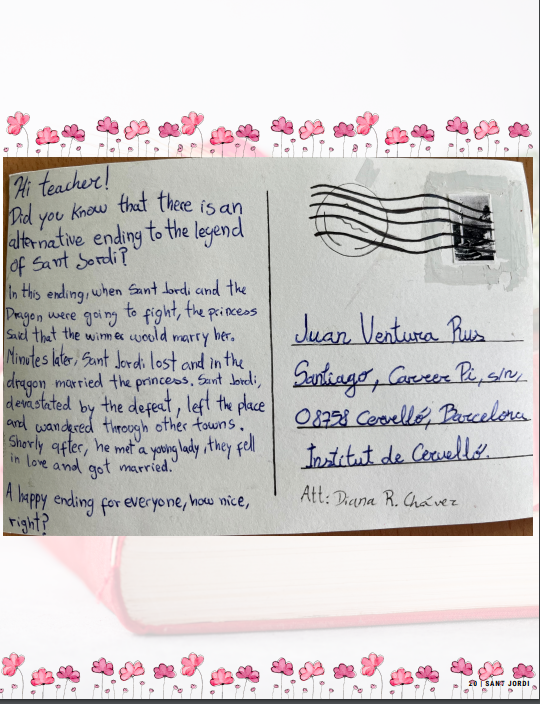 Hi teacher!
Did you know that there is an
alternative ending to the legend
of Sant Jordi?
In this ending, when Sant Jordi and the
Dragon were going to fight, the princess
said that the winner would marry her.
Minutes later, Sant Jordi lost and in the
dragon married the princess. Sant Jordi,
devastated by the defeat, left the place
and wandered through other towns.
Shorly after, he met a young lady, they fell
in love and got married.
A happy ending for everyone, how nice,
right?
Juan Ventura Rus
Santiago, Carrer Pi, s/n,
08758 Cervelló, Barcelona
Institut de Cervelló.
Att: Diana R. Chávez
20 | SANT JORDI